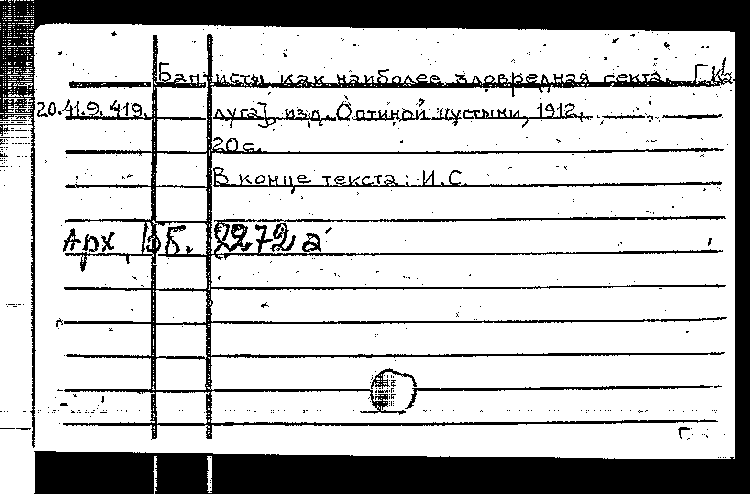 Баптисты как наиболее зловредная секта. [Ка
20.41.9.419. луга], изд. Оптиной пустыни, 1912.
20 с.
В конце текста: И.С.
Арх. 2272а